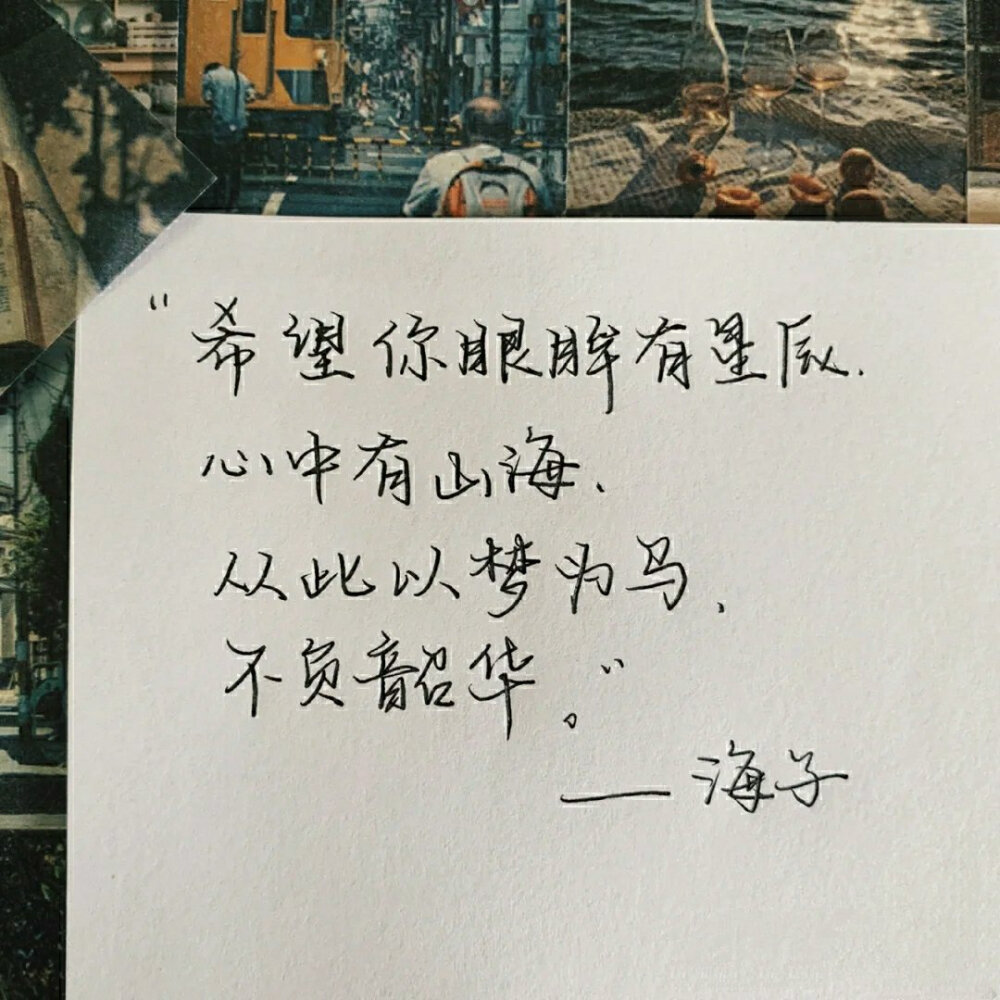 “希望你眼眸有星辰.
心中有山海、
从此以梦为马,
不负韶华。”
——海子